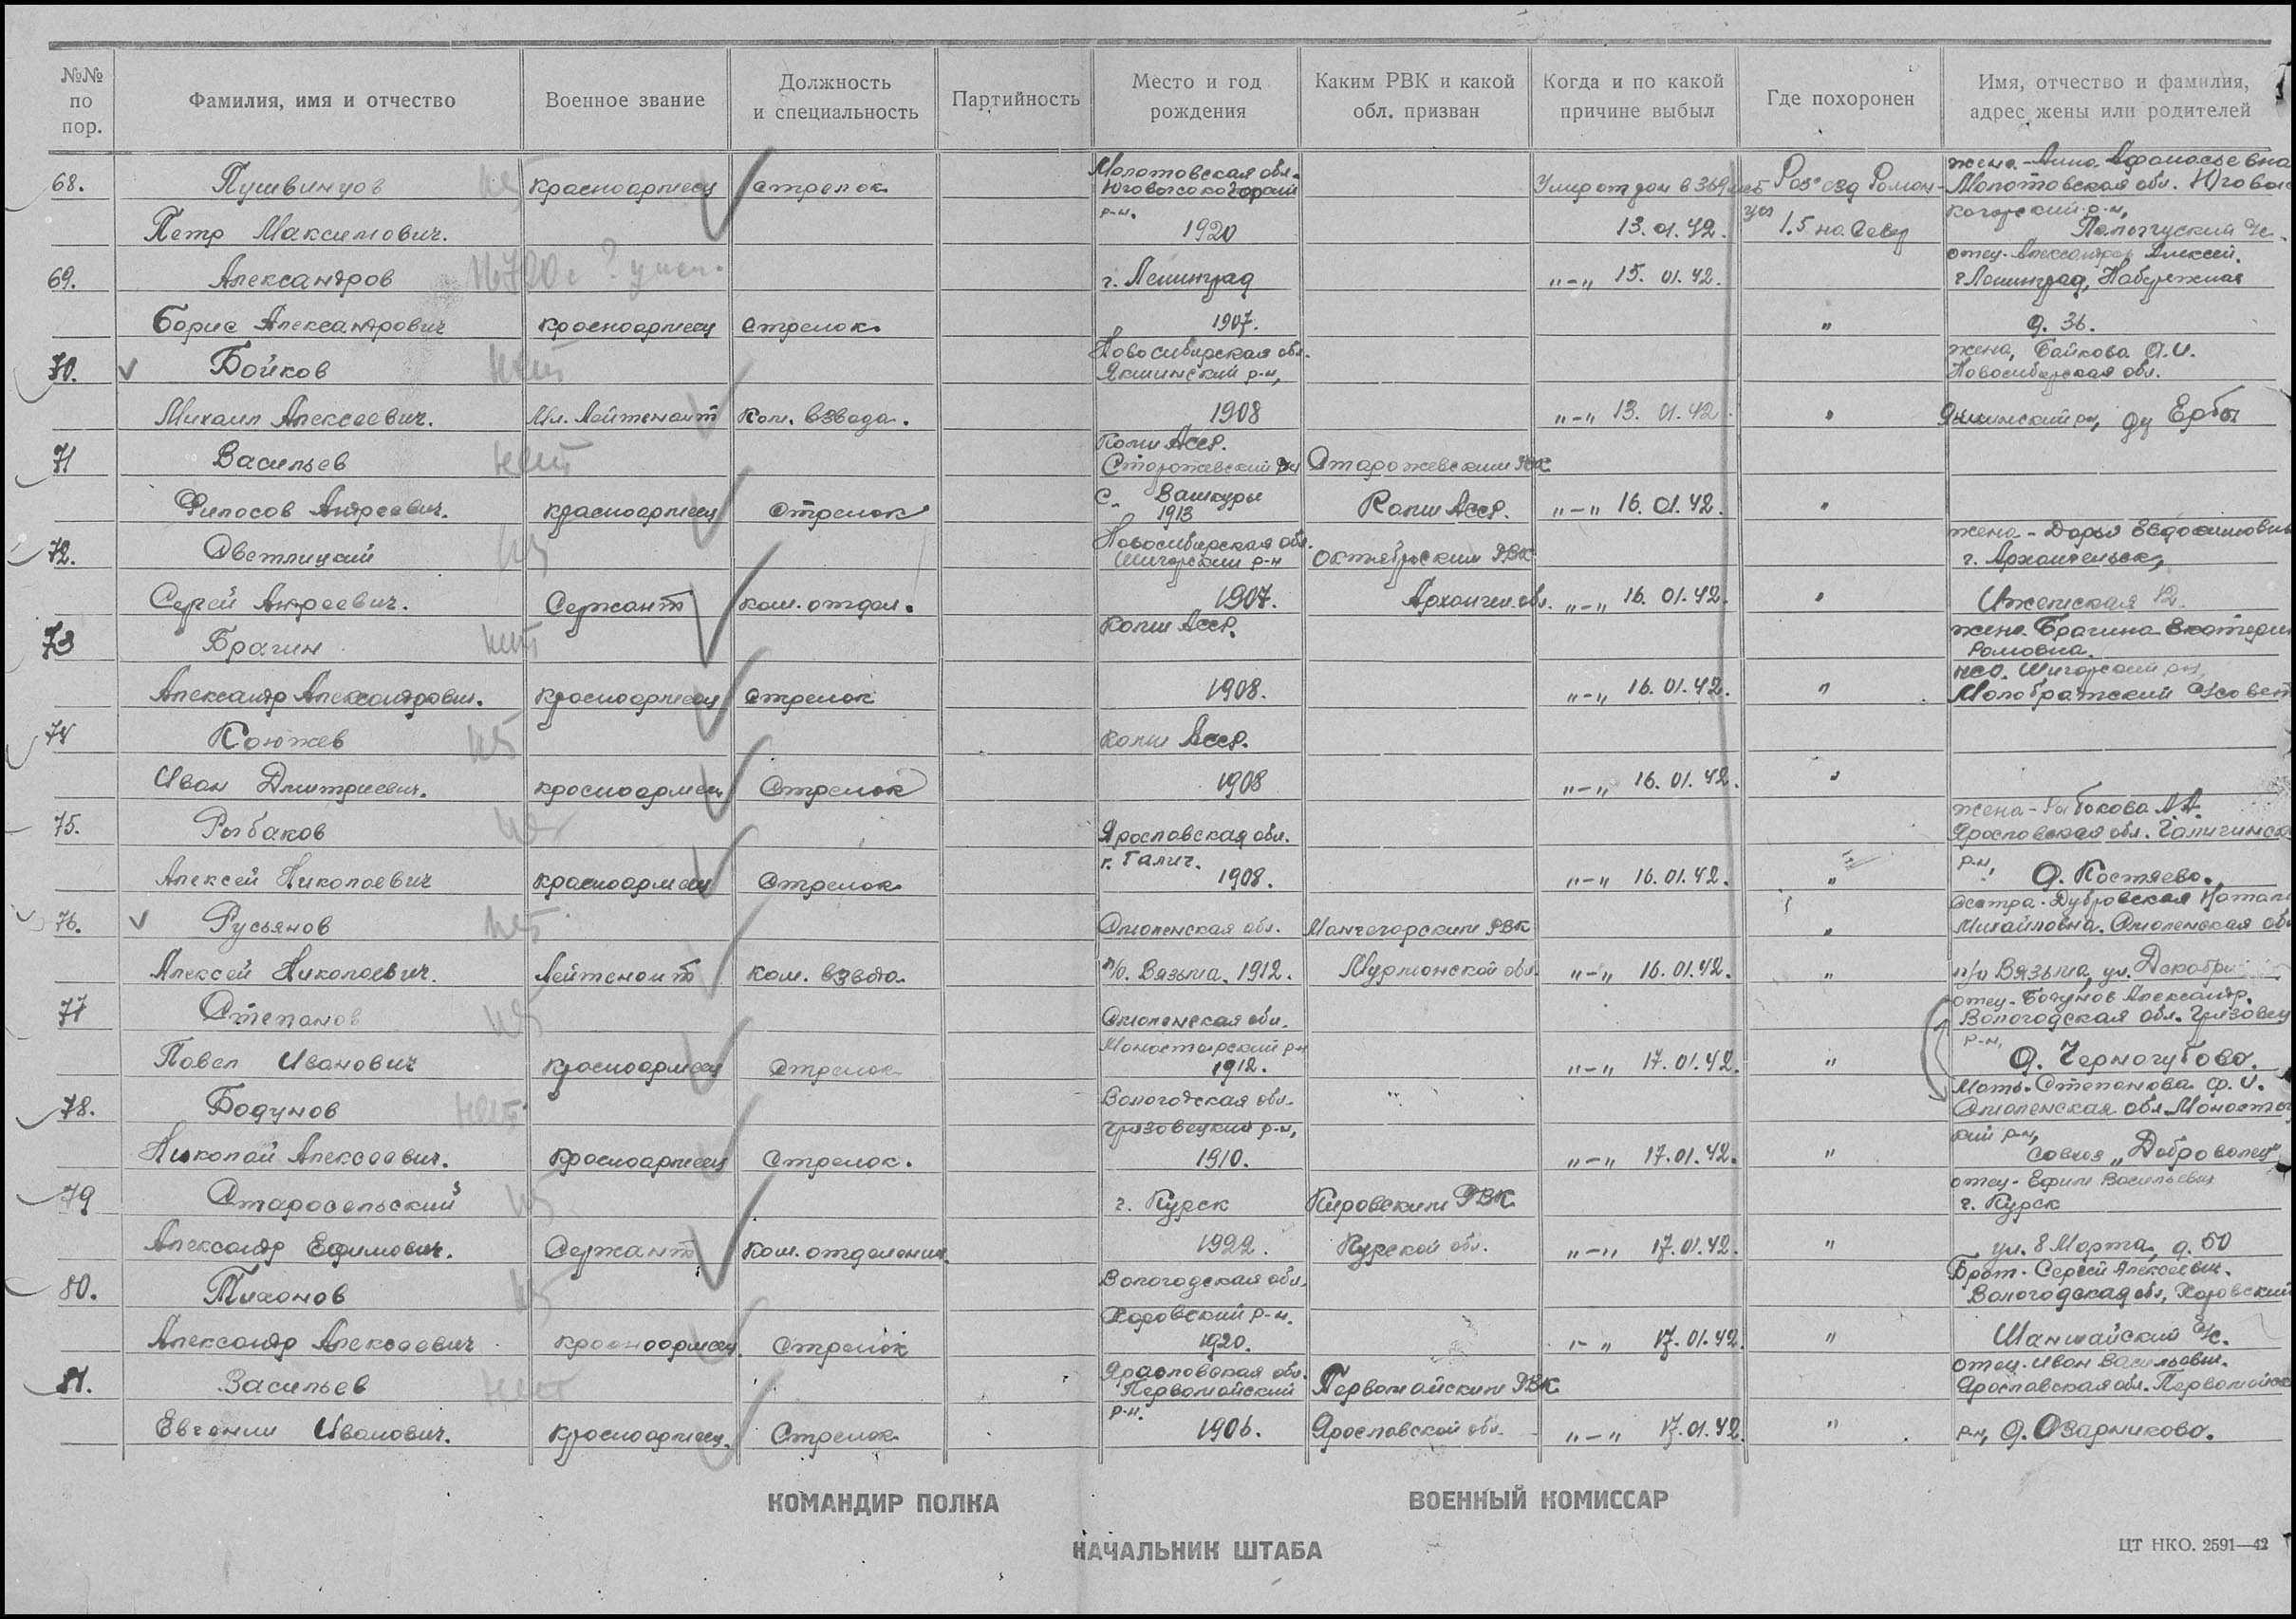 №№ по пор.
Фамилия, имя и отчество
Военное звание
Должность и специальность
Партийность
Место и год рождения
Каким РВК и какой обл. призван
Когда и по какой причине выбыл
Где похоронен
Имя, отчество и фамилия, адрес жены или родителей
68. Пушвинцов красноармеец стрелок Молотовская обл. Умер от ран в 369 жена - Анна Афанасьевна
Молотовская обл.
Петр Максимович. р-н. 1920 13.01.42. 1.5 на Север
69. Александров г. Ленинград „-„ 15.01.42. отец - Александров Алексей.
г. Ленинград, Набережная
Борис Александрович красноармеец стрелок. 1907. „ д. 36.
70. Бойков нет Новосибирская обл. жена, Байкова А.И.
р-н, Новосибирская обл.
Михаил Алексеевич. Мл. Лейтенант Ком. взвода. 1908 „-„ 13.01.42. „ Ербы
71 Васильев нет Коми Асср.
Сторожевский р-н Сторожевским РВК
Филосов Андреевич. красноармеец Стрелок с. Вашкуры 1913 Коми Асср. „-„ 16.01.42. „
72. Светлицкий Новосибирская обл. Октябрьским РВК жена - Дарья
р-н г. Архангельск,
Сергей Андреевич. Сержант ком. отдел. 1907. Архангел. обл. „-„ 16.01.42. „ 12.
73 Брагин нет Коми Асср. жена Брагина
Александр Александрович. красноармеец стрелок 1908. „-„ 16.01.42. „
74 Коюшев Коми Асср.
Иван Дмитриевич. красноармеец Стрелок 1908 „-„ 16.01.42. „
75. Рыбаков нет Ярославская обл. жена - Рыбакова А.А.
Ярославская обл.
Алексей Николаевич красноармеец Стрелок г. Галич. 1908. „-„ 16.01.42. „ р-н, д. Костяево.
76. Русьянов нет Смоленская обл. Мончегорским РВК „ сестра - Дубровская
Михайловна. Смоленская обл.
Алексей Николаевич. Лейтенант Ком. взвода. п/о. Вязьма. 1912. Мурманской обл. „-„ 16.01.42. „ п/о Вязьма, ул. Декабри
77 Степанов Смоленская обл. отец - Богунов Александр.
Вологодская обл. Грязовец
Павел Иванович красноармеец Стрелок Монастырский р-н 1912. „-„ 17.01.42. „ р-н, д. Черногубово.
78. Бодунов нет Вологодская обл. Мать - Степанова Ф.И.
Смоленская обл. Монастыр
Николай Алексеевич. красноармеец Стрелок. Грязовецкий р-н, 1910. „-„ 17.01.42. „ кий р-н, Совхоз „Доброволец"
79 Старосельский г. Курск Кировским РВК отец - Ефим Васильевич
г. Курск
Александр Ефимович. Сержант Ком. отделения. 1922. Курской обл. „-„ 17.01.42. „ ул. 8 Марта, д. 50
80. Тихонов Вологодская обл. Брат - Сергей Алексеевич.
Вологодская обл, Харовский
Александр Алексеевич красноармеец. Стрелок Харовский р-н. 1920. „-„ 17.01.42. „ Шапшайский с/с.
81. Васильев нет Ярославская обл. Первомайский Первомайским РВК отец - Иван Васильевич.
Ярославская обл. Первомайск
Евгений Иванович. красноармеец. Стрелок р-н. 1906. Ярославской обл. „-„ 17.01.42. „ р-н, д. Озарниково.
КОМАНДИР ПОЛКА
ВОЕННЫЙ КОМИССАР
НАЧАЛЬНИК ШТАБА
ЦТ НКО. 2591—42